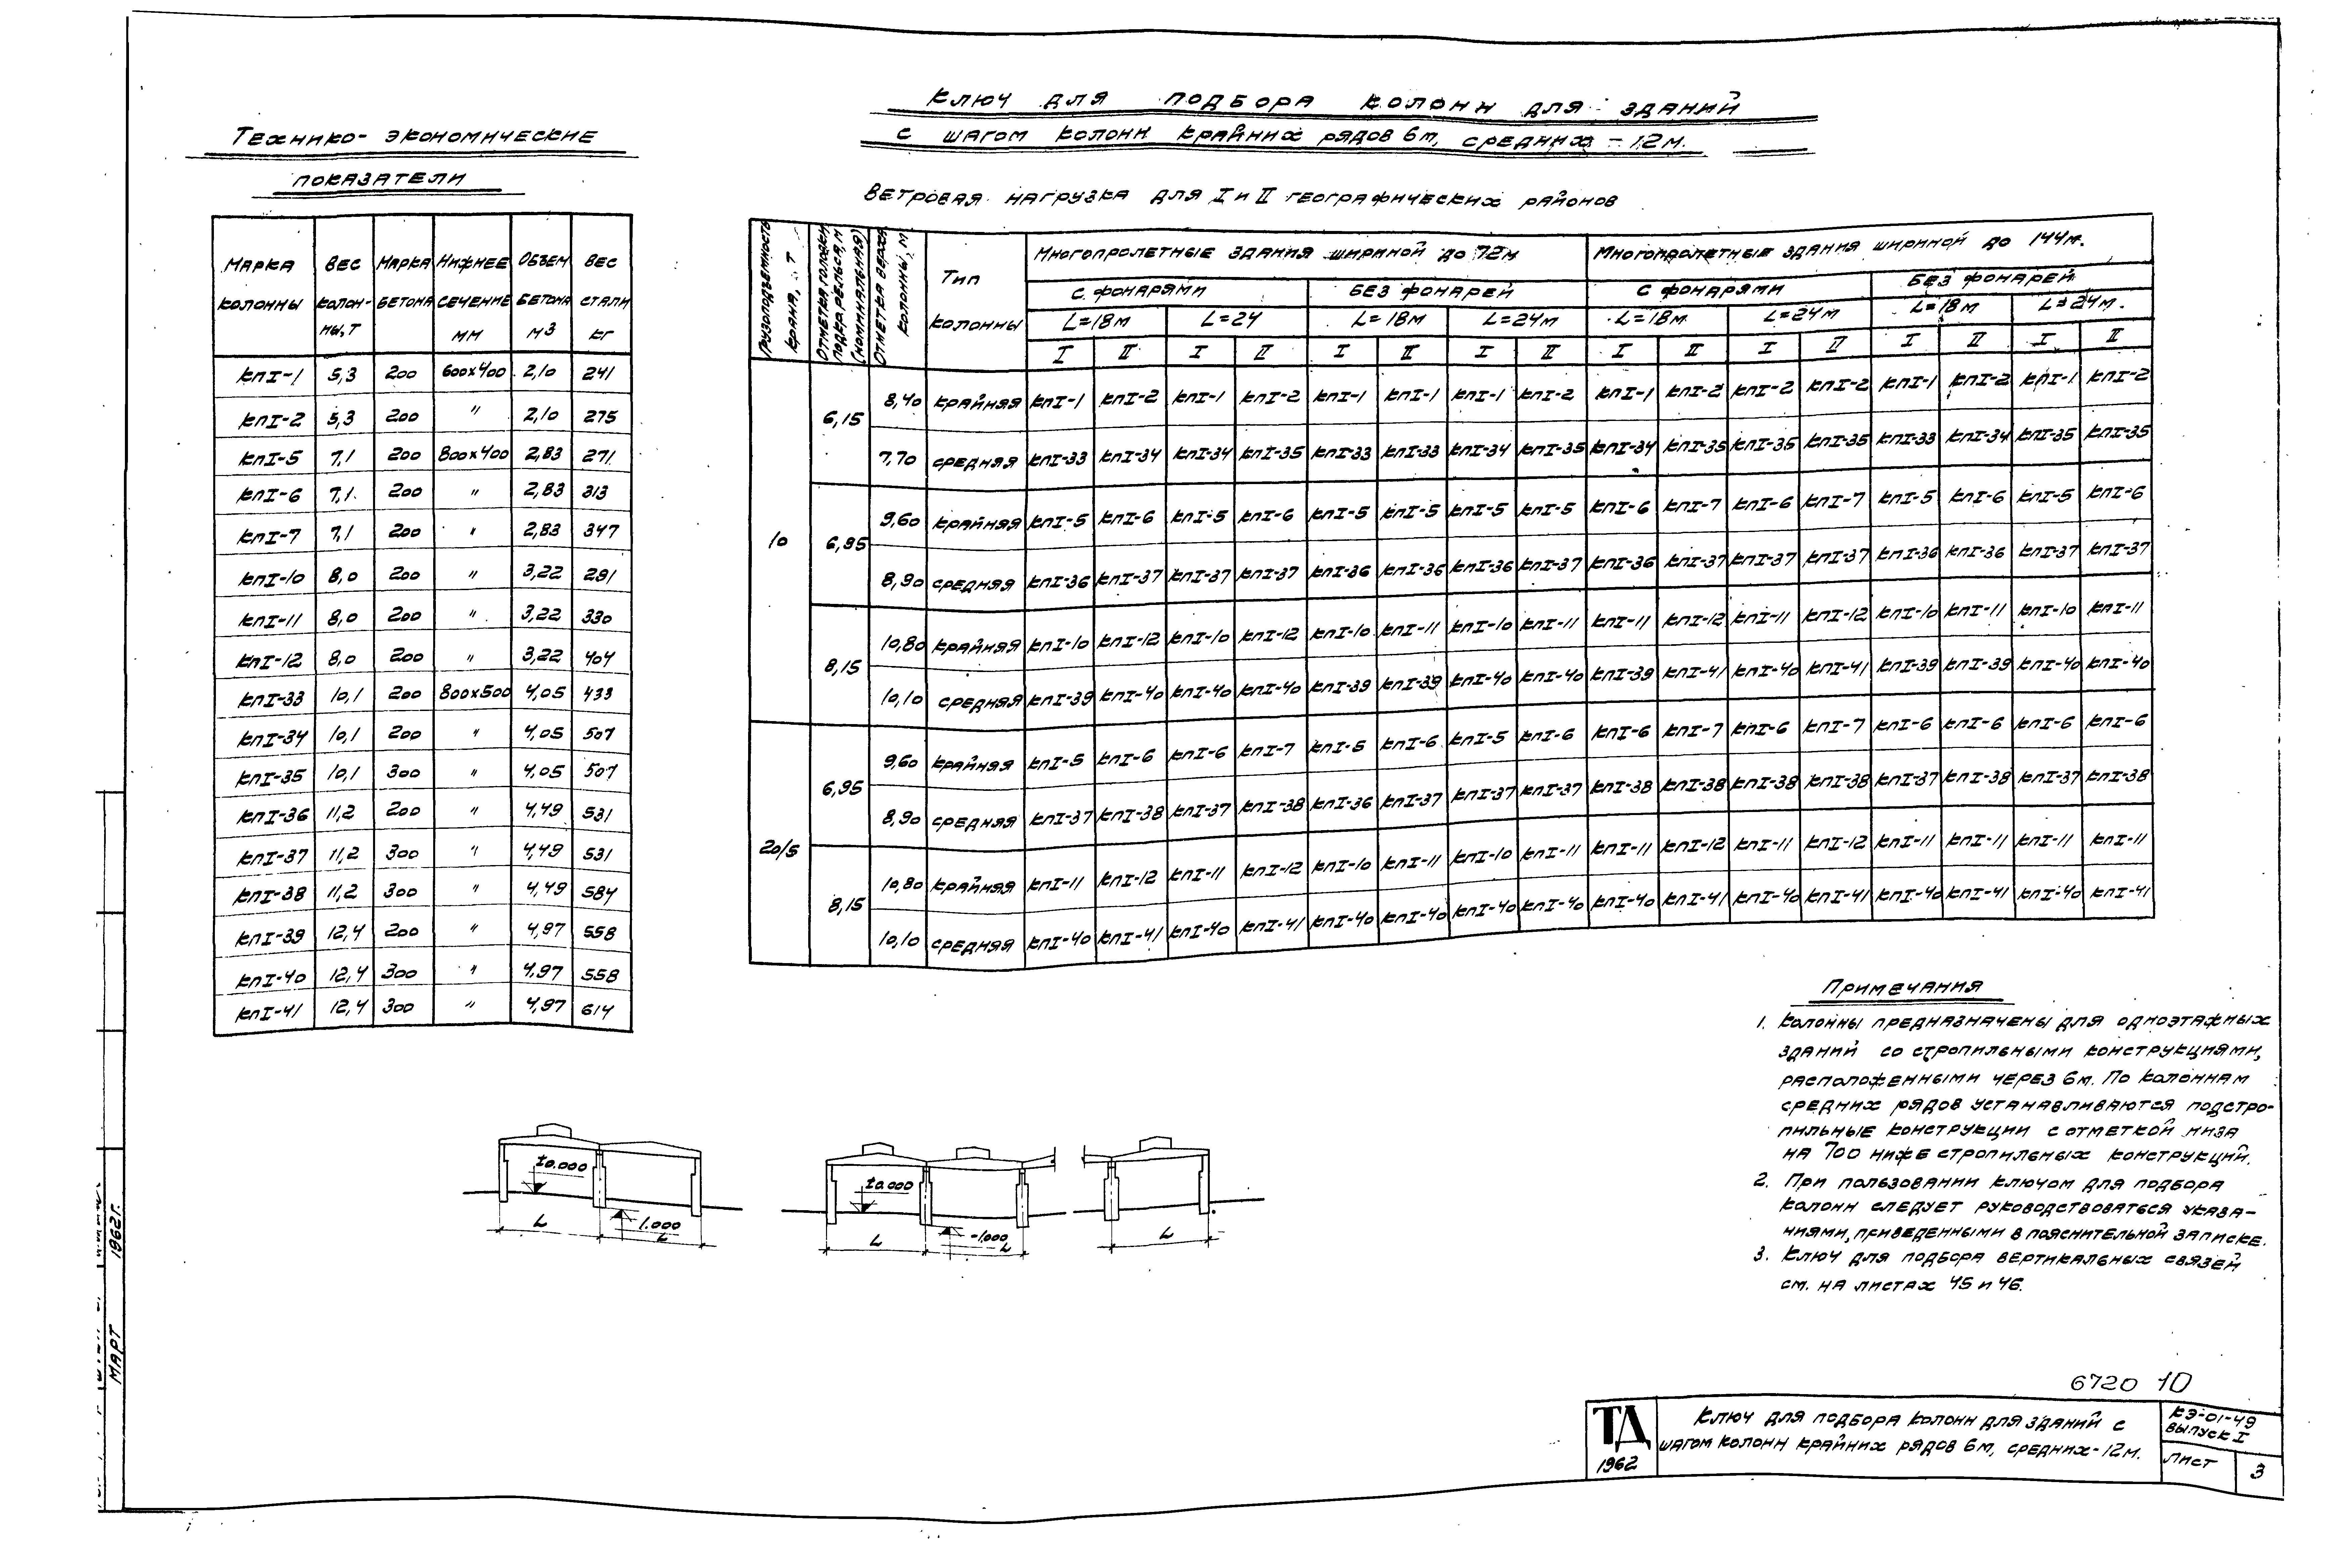 Ключ для подбора колонн для зданий
с шагом колонн крайних рядов 6м, средних – 12м.
Технико-экономические
показатели
Ветровая нагрузка для I и II географических районов
Марка колонны | Вес колонны, т | Марка бетона | Нижнее сечение мм | Объем бетона м3 | Вес стали кг
КПI-1 5,3 200 600х400 2,10 241
КПI-2 5,3 200 " 2,10 275
КПI-5 7,1 200 800х400 2,83 271
КПI-6 7,1 200 " 2,83 313
КПI-7 7,1 200 " 2,83 347
КПI-10 8,0 200 " 3,22 291
КПI-11 8,0 200 " 3,22 330
КПI-12 8,0 200 " 3,22 404
КПI-33 10,1 200 800х500 4,05 433
КПI-34 10,1 200 " 4,05 507
КПI-35 10,1 300 " 4,05 507
КПI-36 11,2 200 " 4,49 531
КПI-37 11,2 300 " 4,49 531
КПI-38 11,2 300 " 4,49 584
КПI-39 12,4 200 " 4,97 558
КПI-40 12,4 300 " 4,97 558
КПI-41 12,4 300 " 4,97 614
Грузоподъемность крана, т | Отметка головки подкр. рельса, м (номинальная) | Отметка верха колонны, м | Тип колонны | Многопролетные здания шириной до 72м | Многопролетные здания шириной до 144м.
с фонарями | без фонарей | с фонарями | без фонарей
L=18м L=24 L=18м L=24м L=18м L=24м L=18м L=24м.
I II I II I II I II I II I II I II I II
10
6,15
8,40 крайняя КПI-1 КПI-2 КПI-1 КПI-2 КПI-1 КПI-1 КПI-1 КПI-2 КПI-1 КПI-2 КПI-2 КПI-2 КПI-1 КПI-2 КПI-1 КПI-2
7,70 средняя КПI-33 КПI-34 КПI-34 КПI-35 КПI-33 КПI-33 КПI-34 КПI-35 КПI-34 КПI-35 КПI-35 КПI-35 КПI-33 КПI-34 КПI-35 КПI-35
6,95
9,60 крайняя КПI-5 КПI-6 КПI-5 КПI-6 КПI-5 КПI-5 КПI-5 КПI-5 КПI-6 КПI-7 КПI-6 КПI-7 КПI-5 КПI-6 КПI-5 КПI-6
8,90 средняя КПI-36 КПI-37 КПI-37 КПI-37 КПI-36 КПI-36 КПI-36 КПI-37 КПI-36 КПI-37 КПI-37 КПI-37 КПI-36 КПI-36 КПI-37 КПI-37
8,15
10,80 крайняя КПI-10 КПI-12 КПI-10 КПI-12 КПI-10 КПI-11 КПI-10 КПI-11 КПI-11 КПI-12 КПI-11 КПI-12 КПI-10 КПI-11 КПI-10 КПI-11
10,10 средняя КПI-39 КПI-40 КПI-40 КПI-40 КПI-39 КПI-39 КПI-40 КПI-40 КПI-39 КПI-41 КПI-40 КПI-41 КПI-39 КПI-39 КПI-40 КПI-40
20/5
6,95
9,60 крайняя КПI-5 КПI-6 КПI-6 КПI-7 КПI-5 КПI-6 КПI-5 КПI-6 КПI-6 КПI-7 КПI-6 КПI-7 КПI-6 КПI-6 КПI-6 КПI-6
8,90 средняя КПI-37 КПI-38 КПI-37 КПI-38 КПI-36 КПI-37 КПI-37 КПI-37 КПI-38 КПI-38 КПI-38 КПI-38 КПI-37 КПI-38 КПI-37 КПI-38
8,15
10,80 крайняя КПI-11 КПI-12 КПI-11 КПI-12 КПI-10 КПI-11 КПI-10 КПI-11 КПI-11 КПI-12 КПI-11 КПI-12 КПI-11 КПI-11 КПI-11 КПI-11
10,10 средняя КПI-40 КПI-41 КПI-40 КПI-41 КПI-40 КПI-40 КПI-40 КПI-40 КПI-40 КПI-41 КПI-40 КПI-41 КПI-40 КПI-41 КПI-40 КПI-41
±0.000
1.000
L L
±0.000
-1,000
L L L
Примечания
1. Колонны предназначены для одноэтажных
зданий со стропильными конструкциями,
расположенными через 6м. По колоннам
средних рядов устанавливаются подстро-
пильные конструкции с отметкой низа
на 700 ниже стропильных конструкций.
2. При пользовании ключом для подбора
колонн следует руководствоваться указа-
ниями, приведенными в пояснительной записке.
3. Ключ для подбора вертикальных связей
см. на листах 45 и 46.
6720 10
ТД
1962
Ключ для подбора колонн для зданий с
шагом колонн крайних рядов 6м, средних-12м.
КЭ-01-49
выпуск I
Лист 3
МАРТ 1962г.